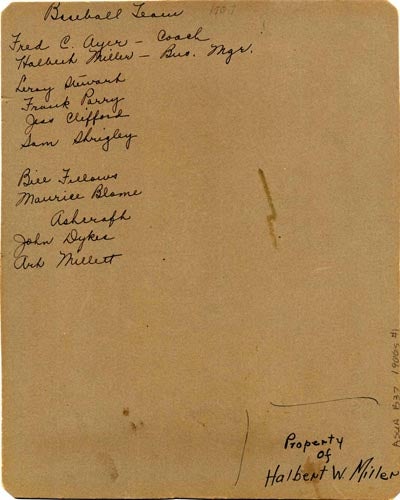 Baseball Team 1907
Fred C. Ayer - Coach
Halbert Miller - Bus. Mgr.
Leroy Stewart
Frank Parry
Jess Clifford
Sam Shrigley
Bill Fellows
Maurice Blome
Ashcraft
John Dykes
Art Millett
Property
of
Halbert W. Miller
1900s #1